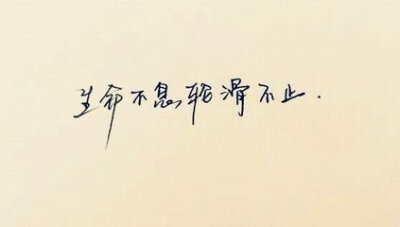 生命不息轮滑不止.